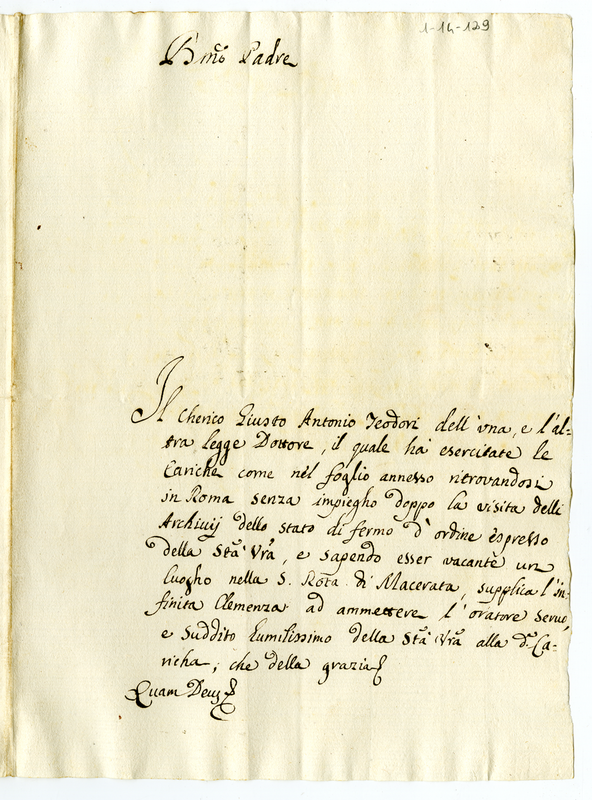 1-14-129
B.mo Padre
Il Cherico Giusto Antonio Teodori dell'una, e l'al=
tra legge Dottore, il quale ha esercitate le
Cariche come nel foglio annesso ritrovandosi
in Roma senza impiegho doppo la visita delli
Archivij dello stato di fermo d'ordine espresso
della Stà Vrà, e sapendo esser vacante un
luogho nella S. Rota di Macerata, supplica l'in-
finita Clemenza ad ammettere l'oratore servo,
e suddito humilissimo della Stà Vrà alla d.ª Ca-
richa, che della grazia
Quam Deus